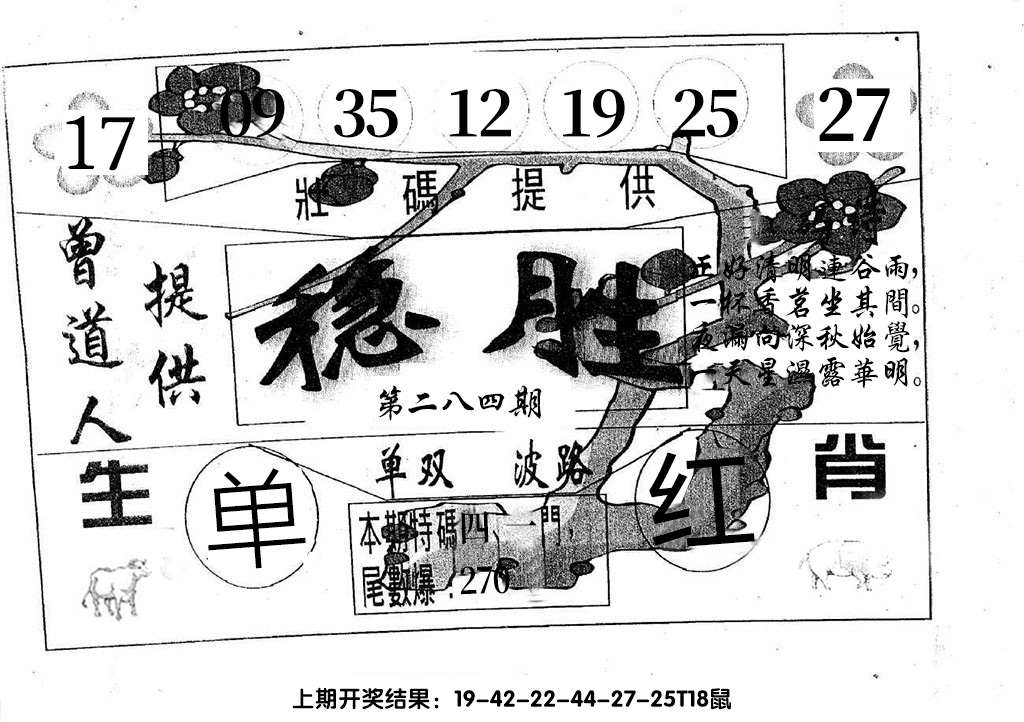 17 09 35 12 19 25 27
壯碼提供
曾道人
提供
稳胜
第二八四期
特
正好清明連谷雨，
一杯香茗坐其間。
夜漏向深秋始覺，
一天星溫露華明。
单双 波路
生肖
单
红
本期特碼四、一門，
尾數爆：270
上期开奖结果：19-42-22-44-27-25T18鼠